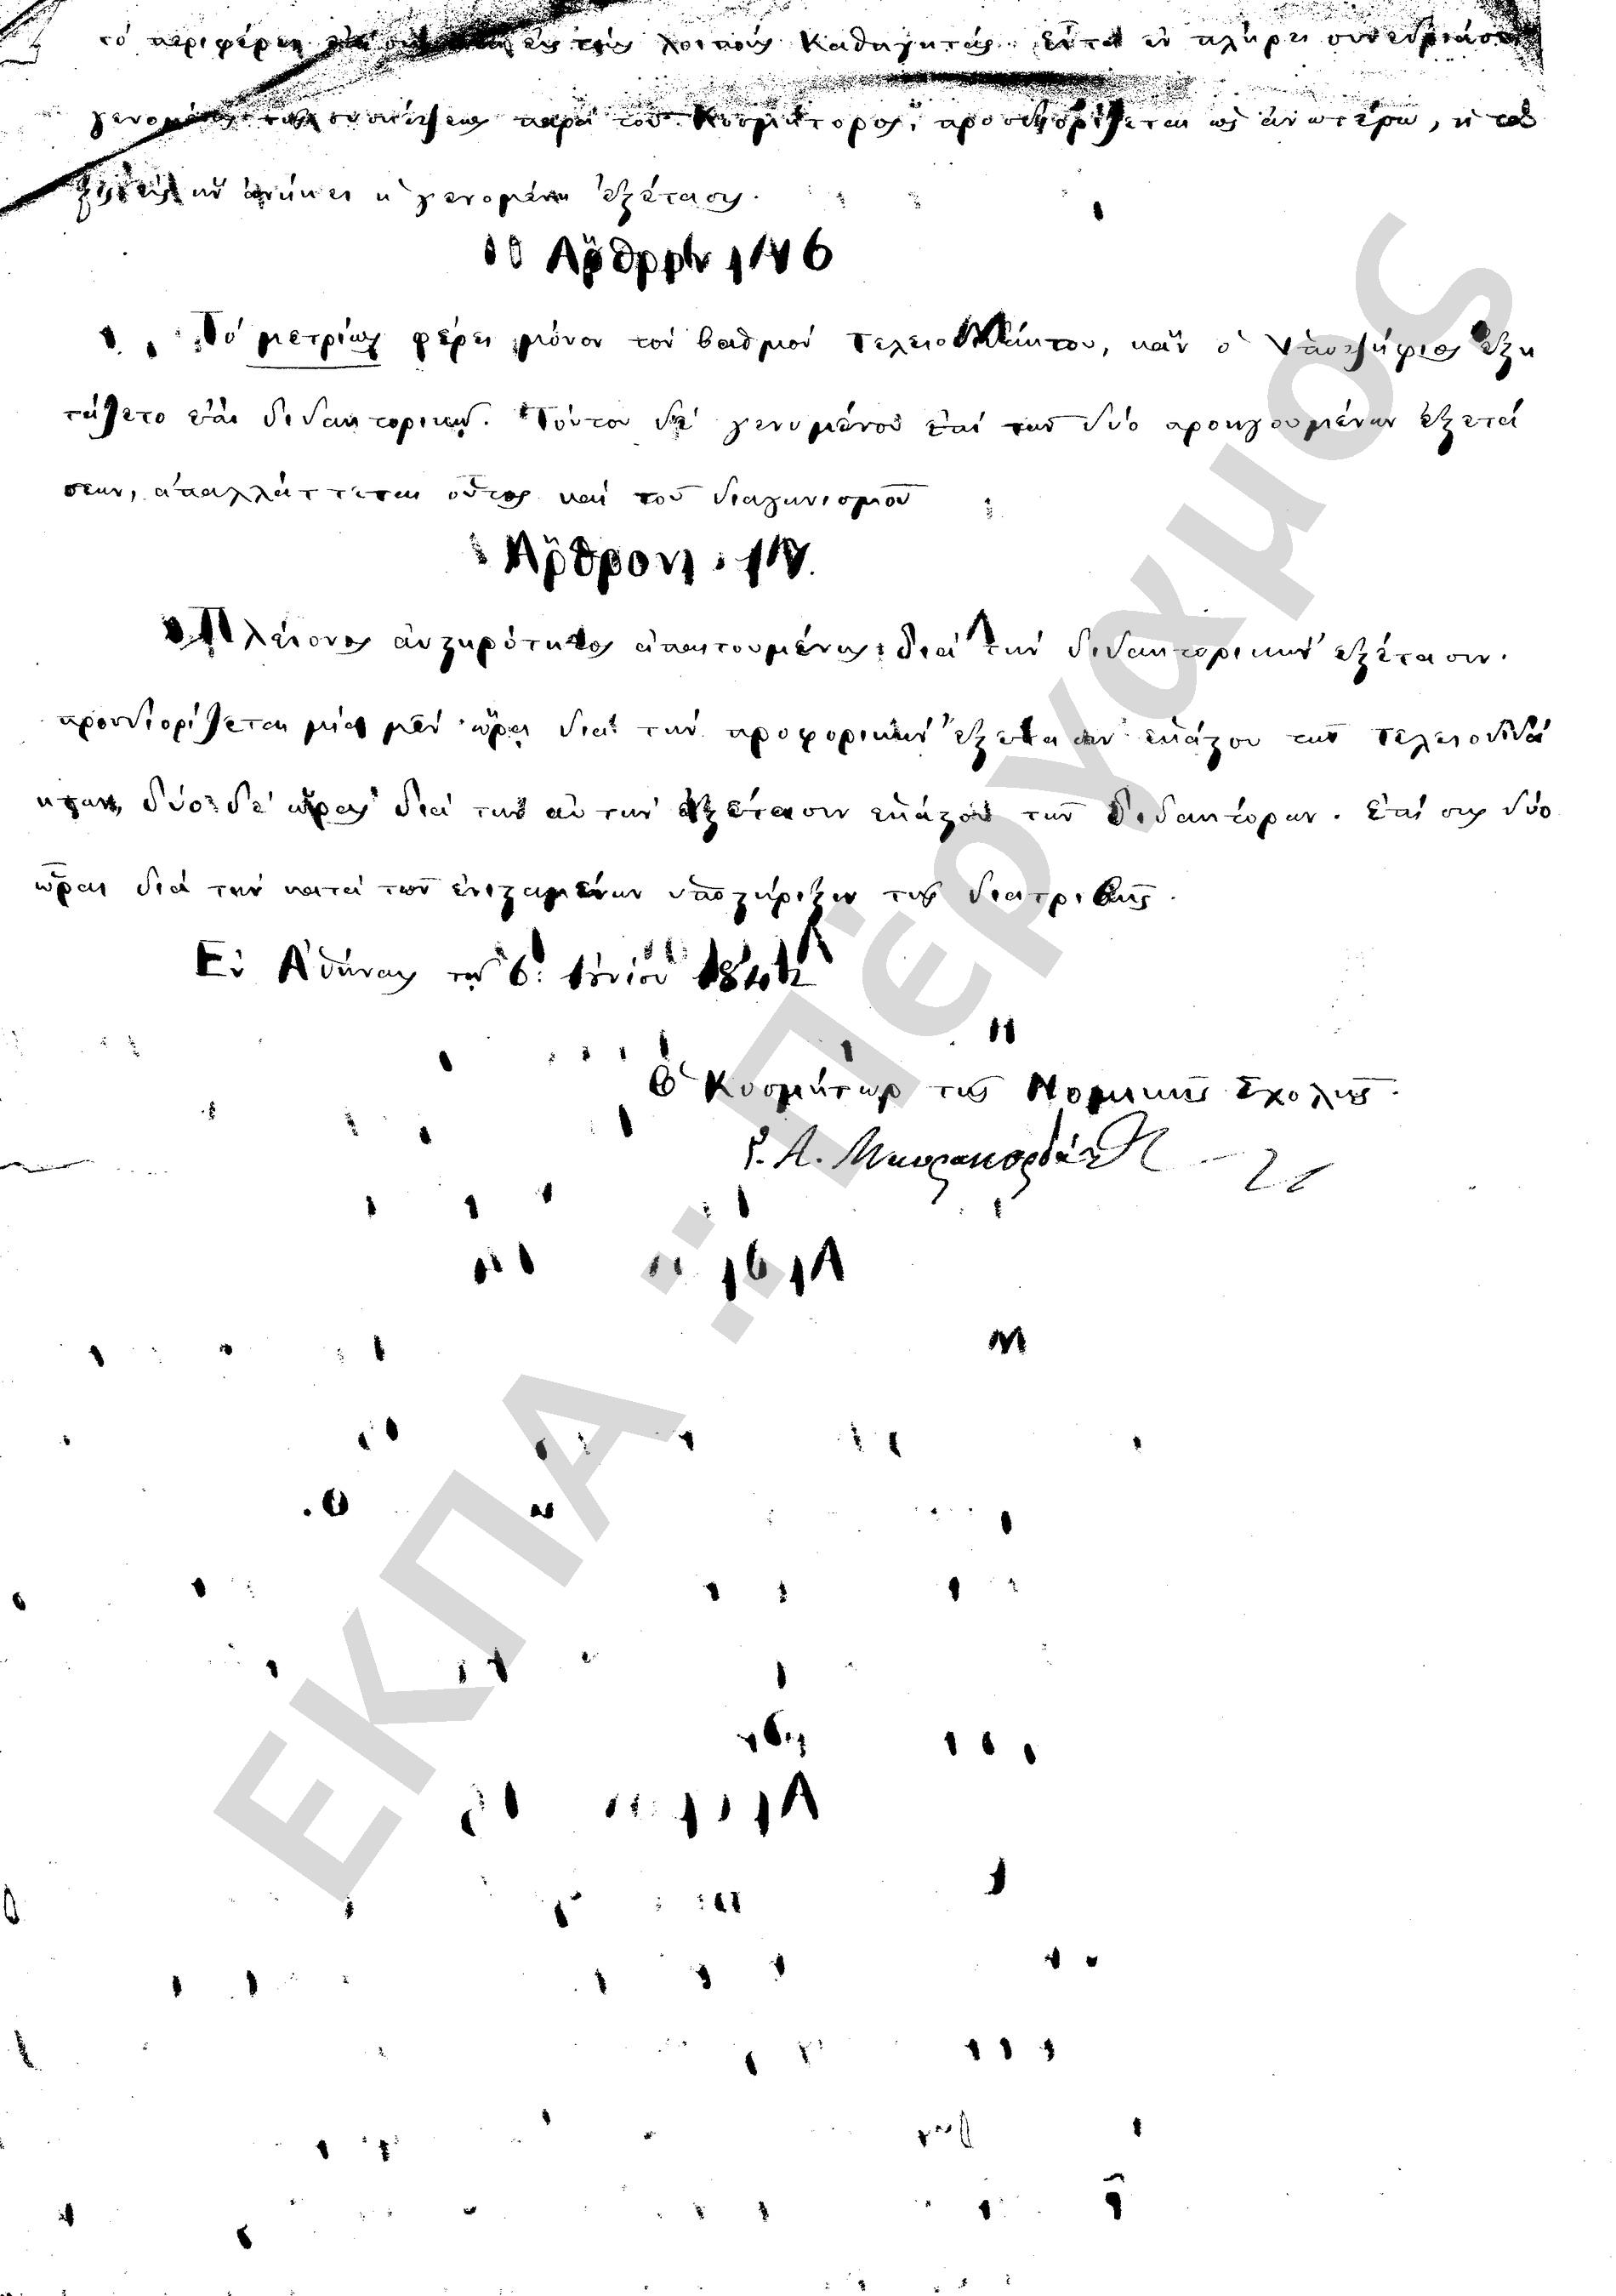 τό περιφέρει εἰς τούς λοιπούς Καθηγητάς. Εἶτα ἐν πλήρει συνεδριάσει
γενομένης συζητήσεως παρά τοῦ Κοσμήτορος, προσδιορίζεται ὡς ἀνωτέρω, ἡ
τάξις εἰς ἥν ἀνήκει ἡ γενομένη ἐξέτασις.
Ἄρθρον
Τό μετρίως φέρει μόνον τόν βαθμόν Τελειοδιδάκτου, κἄν ὁ Ὑποψήφιος ἐξη
τάζετο ἐπί διδακτορικῷ. Τούτου δέ γενομένου ἐπί τῶν δύο προηγουμένων ἐξετά
σεων, ἀπαλλάττεται οὗτος καί τοῦ διαγωνισμοῦ
Ἄρθρον
Πλείονος αὐστηρότητος ἀπαιτουμένης διά τήν διδακτορικήν ἐξέτασιν.
προσδιορίζεται μία μέν ὥρα διά τήν προφορικήν ἐξέτασιν ἑκάστου τῶν Τελειοδιδά
κτων, δύο δέ ὧραι διά τήν αὐτήν ἐξέτασιν ἑκάστου τῶν Διδακτόρων. Ἐπίσης δύο
ὧραι διά τήν κατά τῶν ἐνισταμένων ὑποστήριξιν τῆς διατριβῆς.
Ἐν Ἀθήναις τῇ 6. Ἰουνίου 1842
Ὁ Κοσμήτωρ τῆς Νομικῆς Σχολῆς.
Γ. Α. Μαυροκορδάτος
ΕΚΠΑ :: Πέργαμος